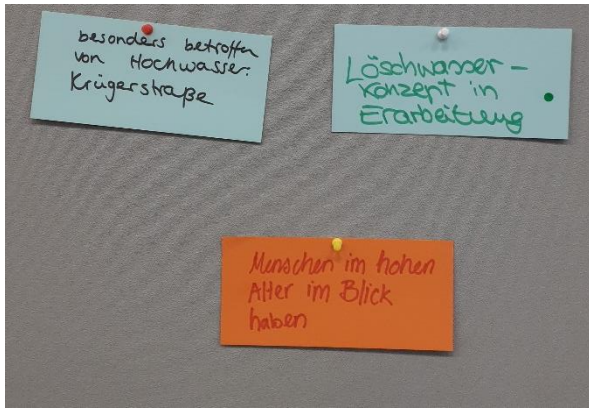 besonders betroffen
von Hochwasser:
Krügerstraße
Löschwasser-
konzept in
Erarbeitung
Menschen im hohen
Alter im Blick
haben